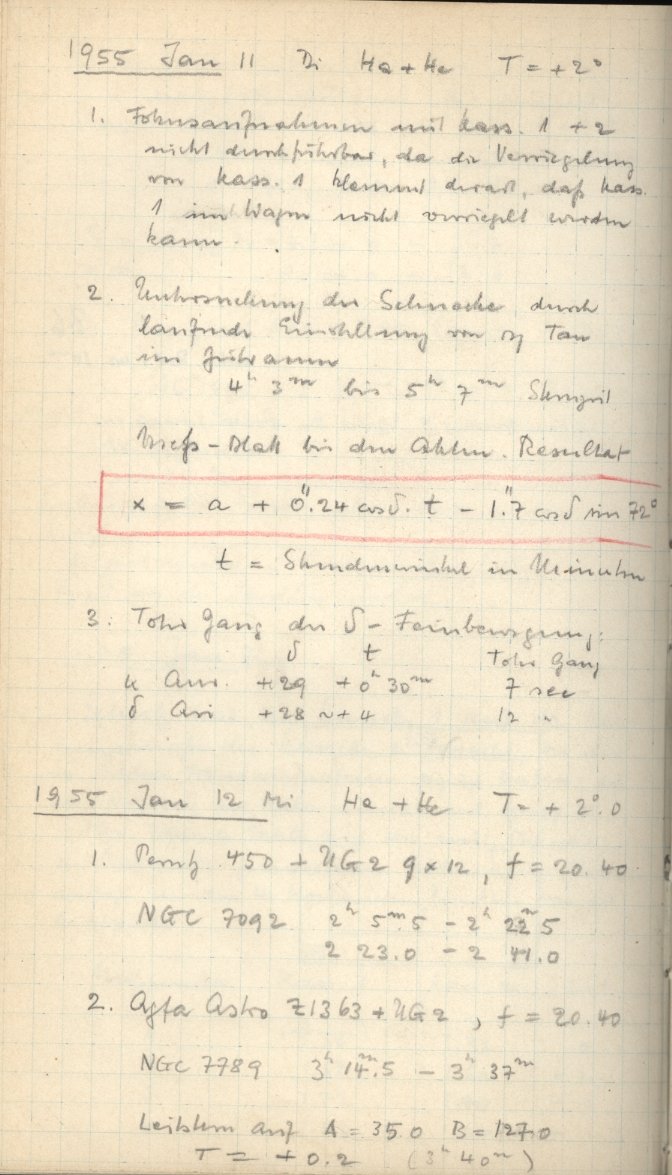 1955 Jan 11 Di Ha + He T = +2°
1. Fokusaufnahmen mit Kass. 1 + 2
nicht durchführbar, da die Verriegelung
von Kass. 1 klemmt derart, daß Kass.
1 im Wagen nicht verriegelt werden
kann.
2. Untersuchung der Schnecke durch
laufende Einstellung von η Tau
im
4ʰ 3ᵐ bis 5ʰ 7ᵐ Sternzeit
Meß-Blatt bei den Akten. Resultat
x = a + 0".24 cosδ. t - 1".7 cosδ sin 72°
t = Stundenwinkel in Minuten
3. Toter Gang der δ-Feinbewegung:
δ t Toter Gang
Aur. +29 +0ʰ 30ᵐ 7 sec
δ Ari +28 ~+4 12 "
1955 Jan 12 Mi Ha + He T = + 2°.0
1. Perutz 450 + UG2 9 x 12, f = 20.40
NGC 7092 2ʰ 5ᵐ.5 - 2ʰ 22ᵐ.5
2 23.0 - 2 41.0
2. Agfa Astro Z1363 + UG2, f = 20.40
NGC 7789 3ʰ 14ᵐ.5 - 3ʰ 37ᵐ
Leitstern auf A = 35.0 B = 127.0
T = +0.2 (3ʰ 40ᵐ)